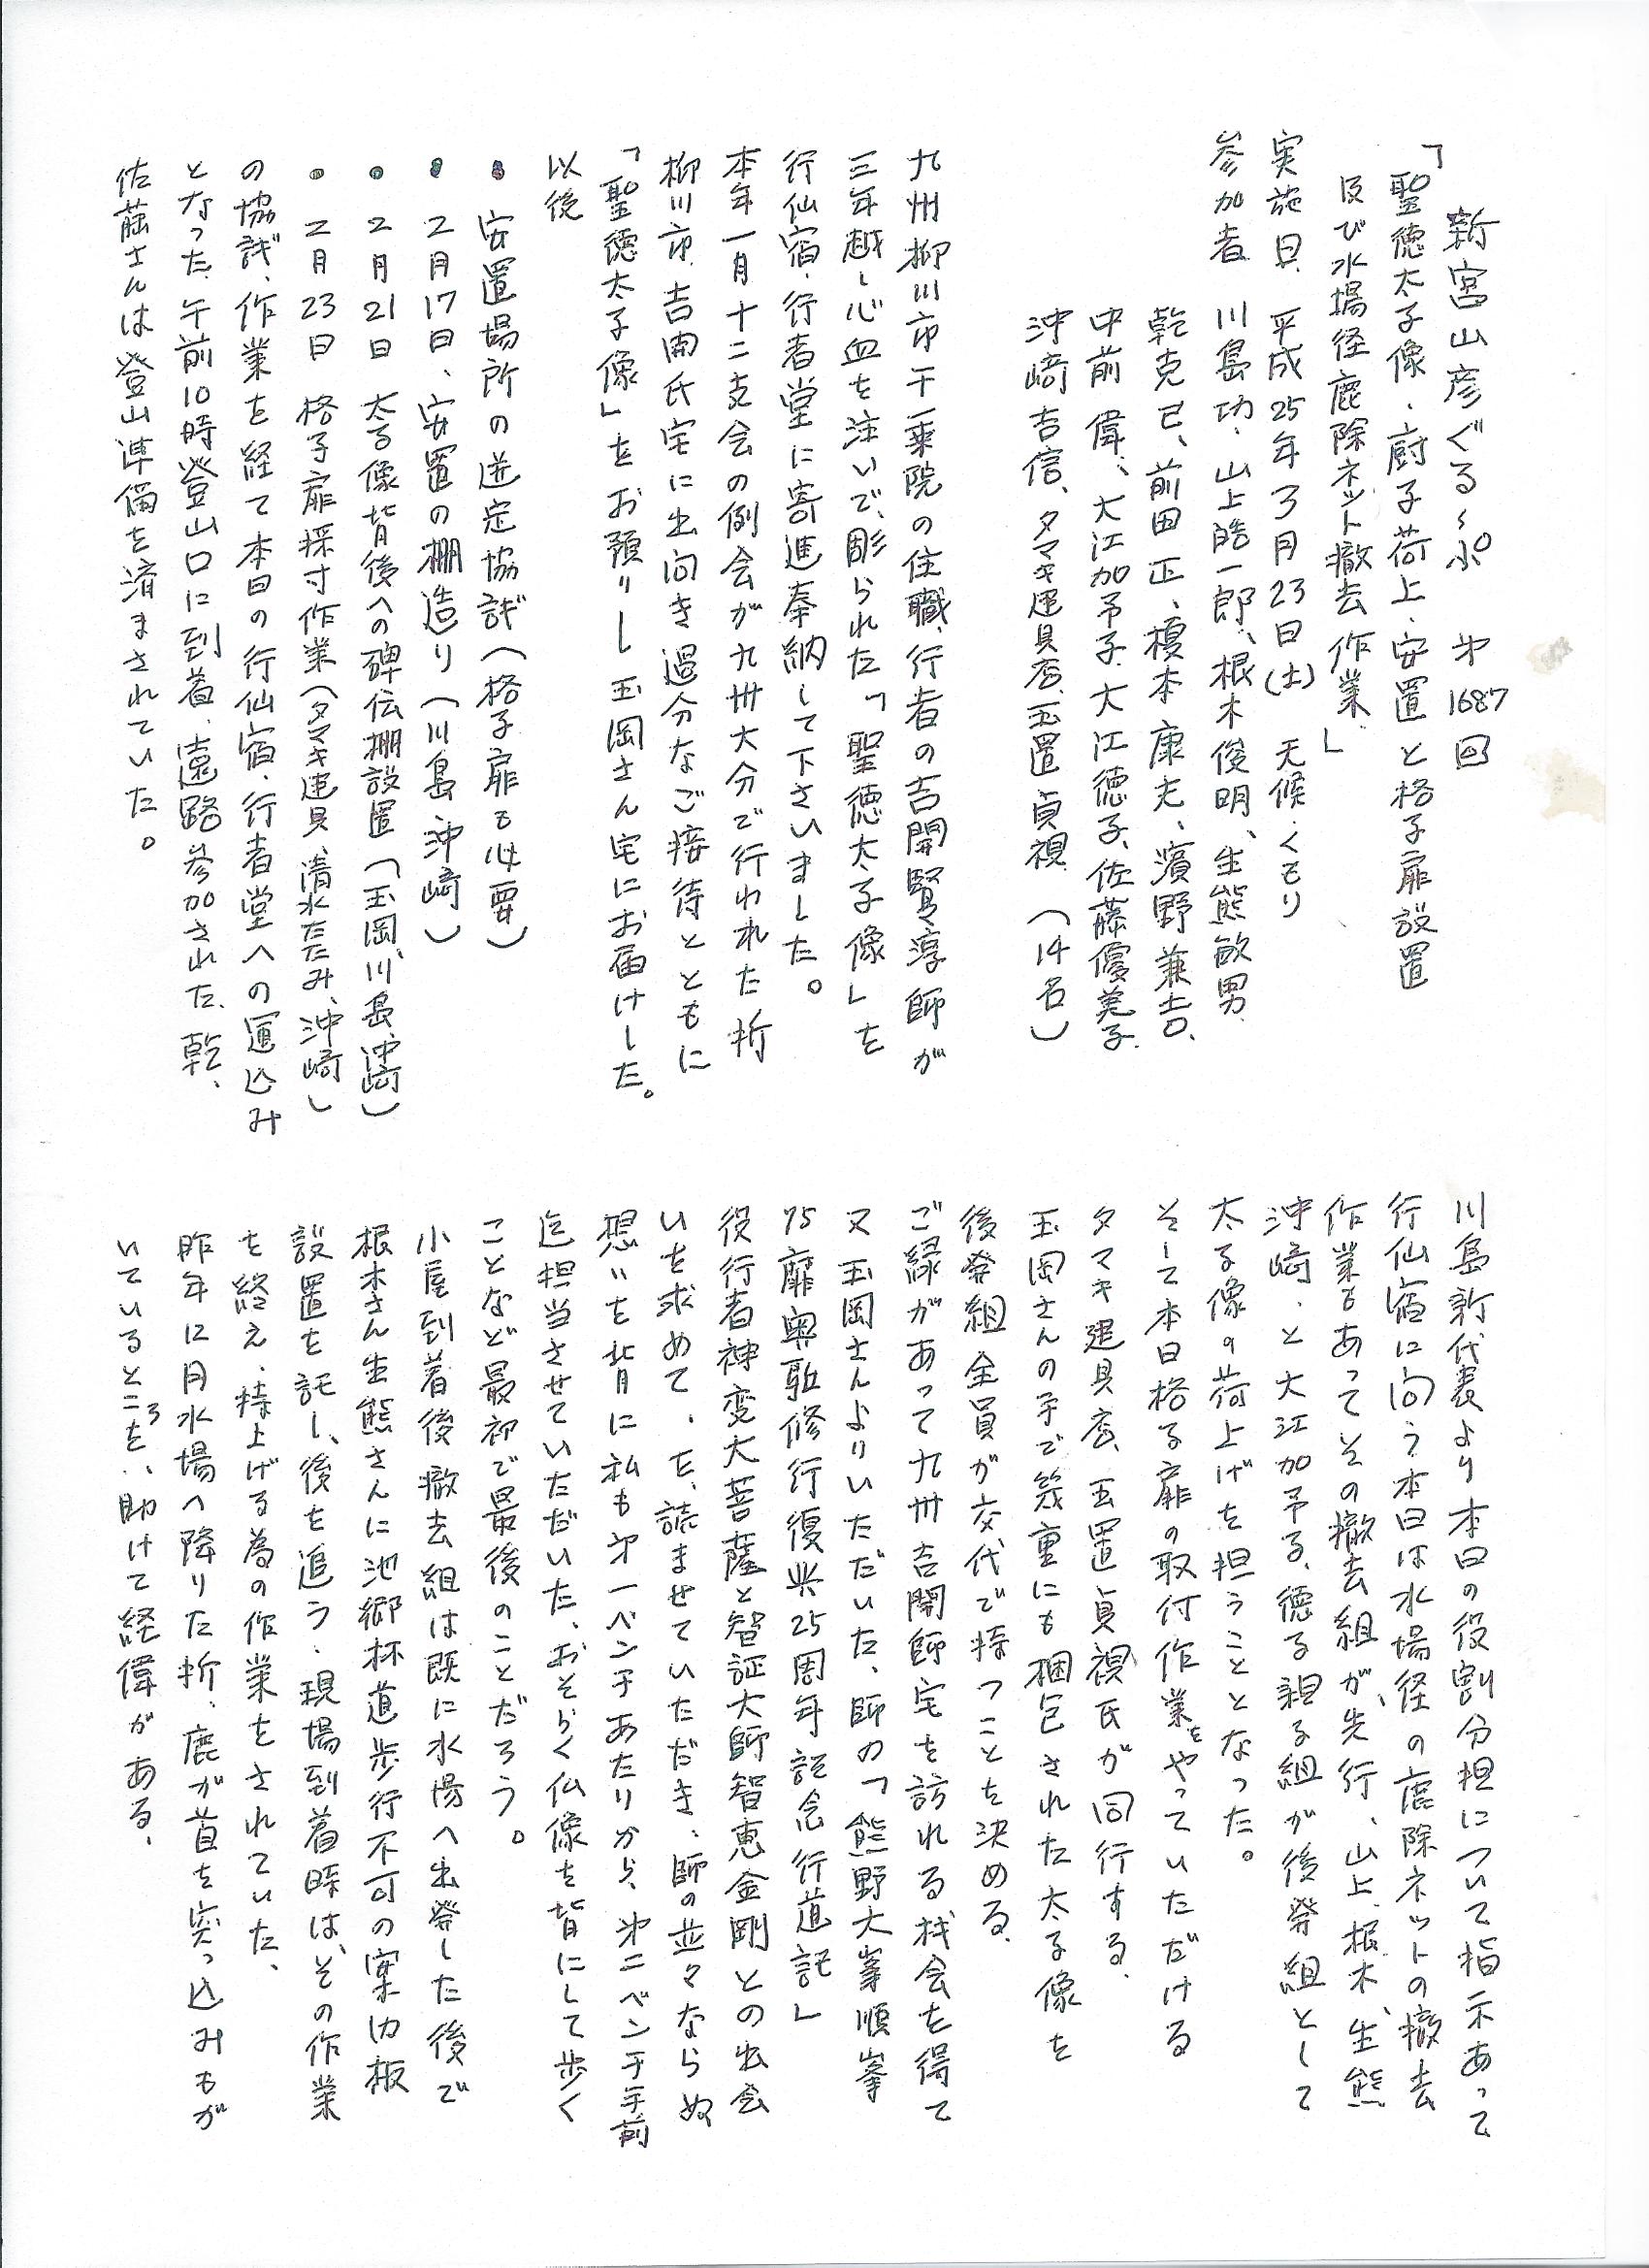 新宮山彦ぐるーぷ 第1687回
「聖徳太子像、厨子荷上、安置と格子扉設置
及び水場径鹿除ネット撤去作業」
実施日、平成25年3月23日(土) 天候、くもり
参加者 川島功、山上皓一郎、根木俊明、生熊敏男、
乾克已、前田正、榎本康夫、濱野兼吉、
中前偉、大江加予子、大江徳子、佐藤優美子、
沖﨑吉信、タマキ建具店、玉置貞視 (14名)
九州柳川市千乗院の住職、行者の吉開賢淳師が
三年越し心血を注いで、彫られた「聖徳太子像」を
行仙宿、行者堂に寄進奉納して下さいました。
本年一月十二支会の例会が九州大分で行われた折
柳川市、吉開氏宅に出向き過分なご接待とともに
「聖徳太子像」をお預りし玉岡さん宅にお届けした。
以後
・安置場所の選定協議(格子扉も必要)
・2月17日、安置の棚造り(川島 沖﨑)
・2月21日 太子像背後への碑伝棚設置(玉岡、川島、沖﨑)
・2月23日 格子扉採寸作業(タマキ建具、清水たたみ、沖﨑)
の協議、作業を経て本日の行仙宿、行者堂への運込み
となった、午前10時登山口に到着、遠路参加された、乾、
佐藤さんは登山準備を済まされていた。
川島新代表より本日の役割分担について指示あって
行仙宿に向う本日は水場径の鹿除ネットの撤去
作業もあってその撤去組が、先行、山上、根木、生熊
沖﨑、と大江加予子、徳子親子組が後発組として
太子像の荷上げを担うこととなった。
そして本日格子扉の取付作業をやっていただける
タマキ建具店、玉置貞視氏が同行する、
玉岡さんの手で幾重にも梱包された太子像を
後発組全員が交代で持つことを決める、
ご縁があって九州吉開師宅を訪れる機会を得て
又玉岡さんよりいただいた、師の「熊野大峯順峯
75靡奥駈修行復興25周年記念行道記」
役行者神変大菩薩と智証大師智恵金剛との出会
いを求めて、を、読ませていただき、師の並々ならぬ
想いを背に私も第一ベンチあたりから、第二ベンチ手前
迄担当させていただいた、おそらく仏像を背にして歩く
ことなど最初で最後のことだろう。
小屋到着後撤去組は既に水場へ出発した後で
根木さん生熊さんに池郷林道歩行不可の案内板
設置を託し、後を追う、現場到着時は、その作業
を終え、持上げる為の作業をされていた、
昨年12月水場へ降りた折、鹿が首を突っ込みもが
いているところを、助けて経偉がある、